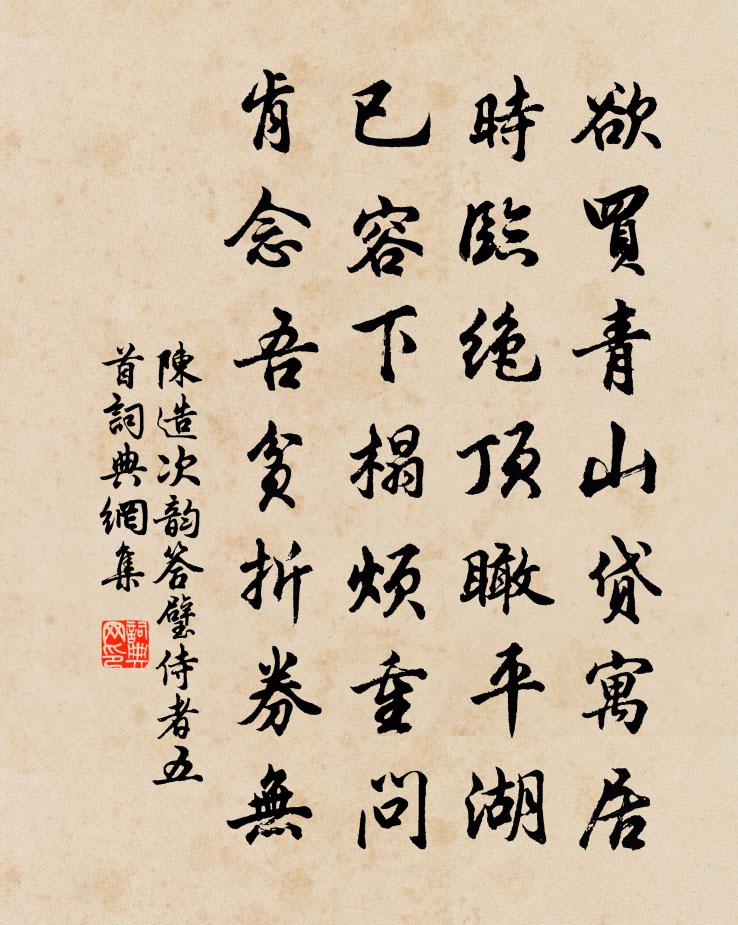 欲買青山貸寓居
時臨絶頂瞰平湖
已容下榻煩重問
肯念吾貧折券無
陳造次韵答璧侍者五
首詞典網集
詞典网印